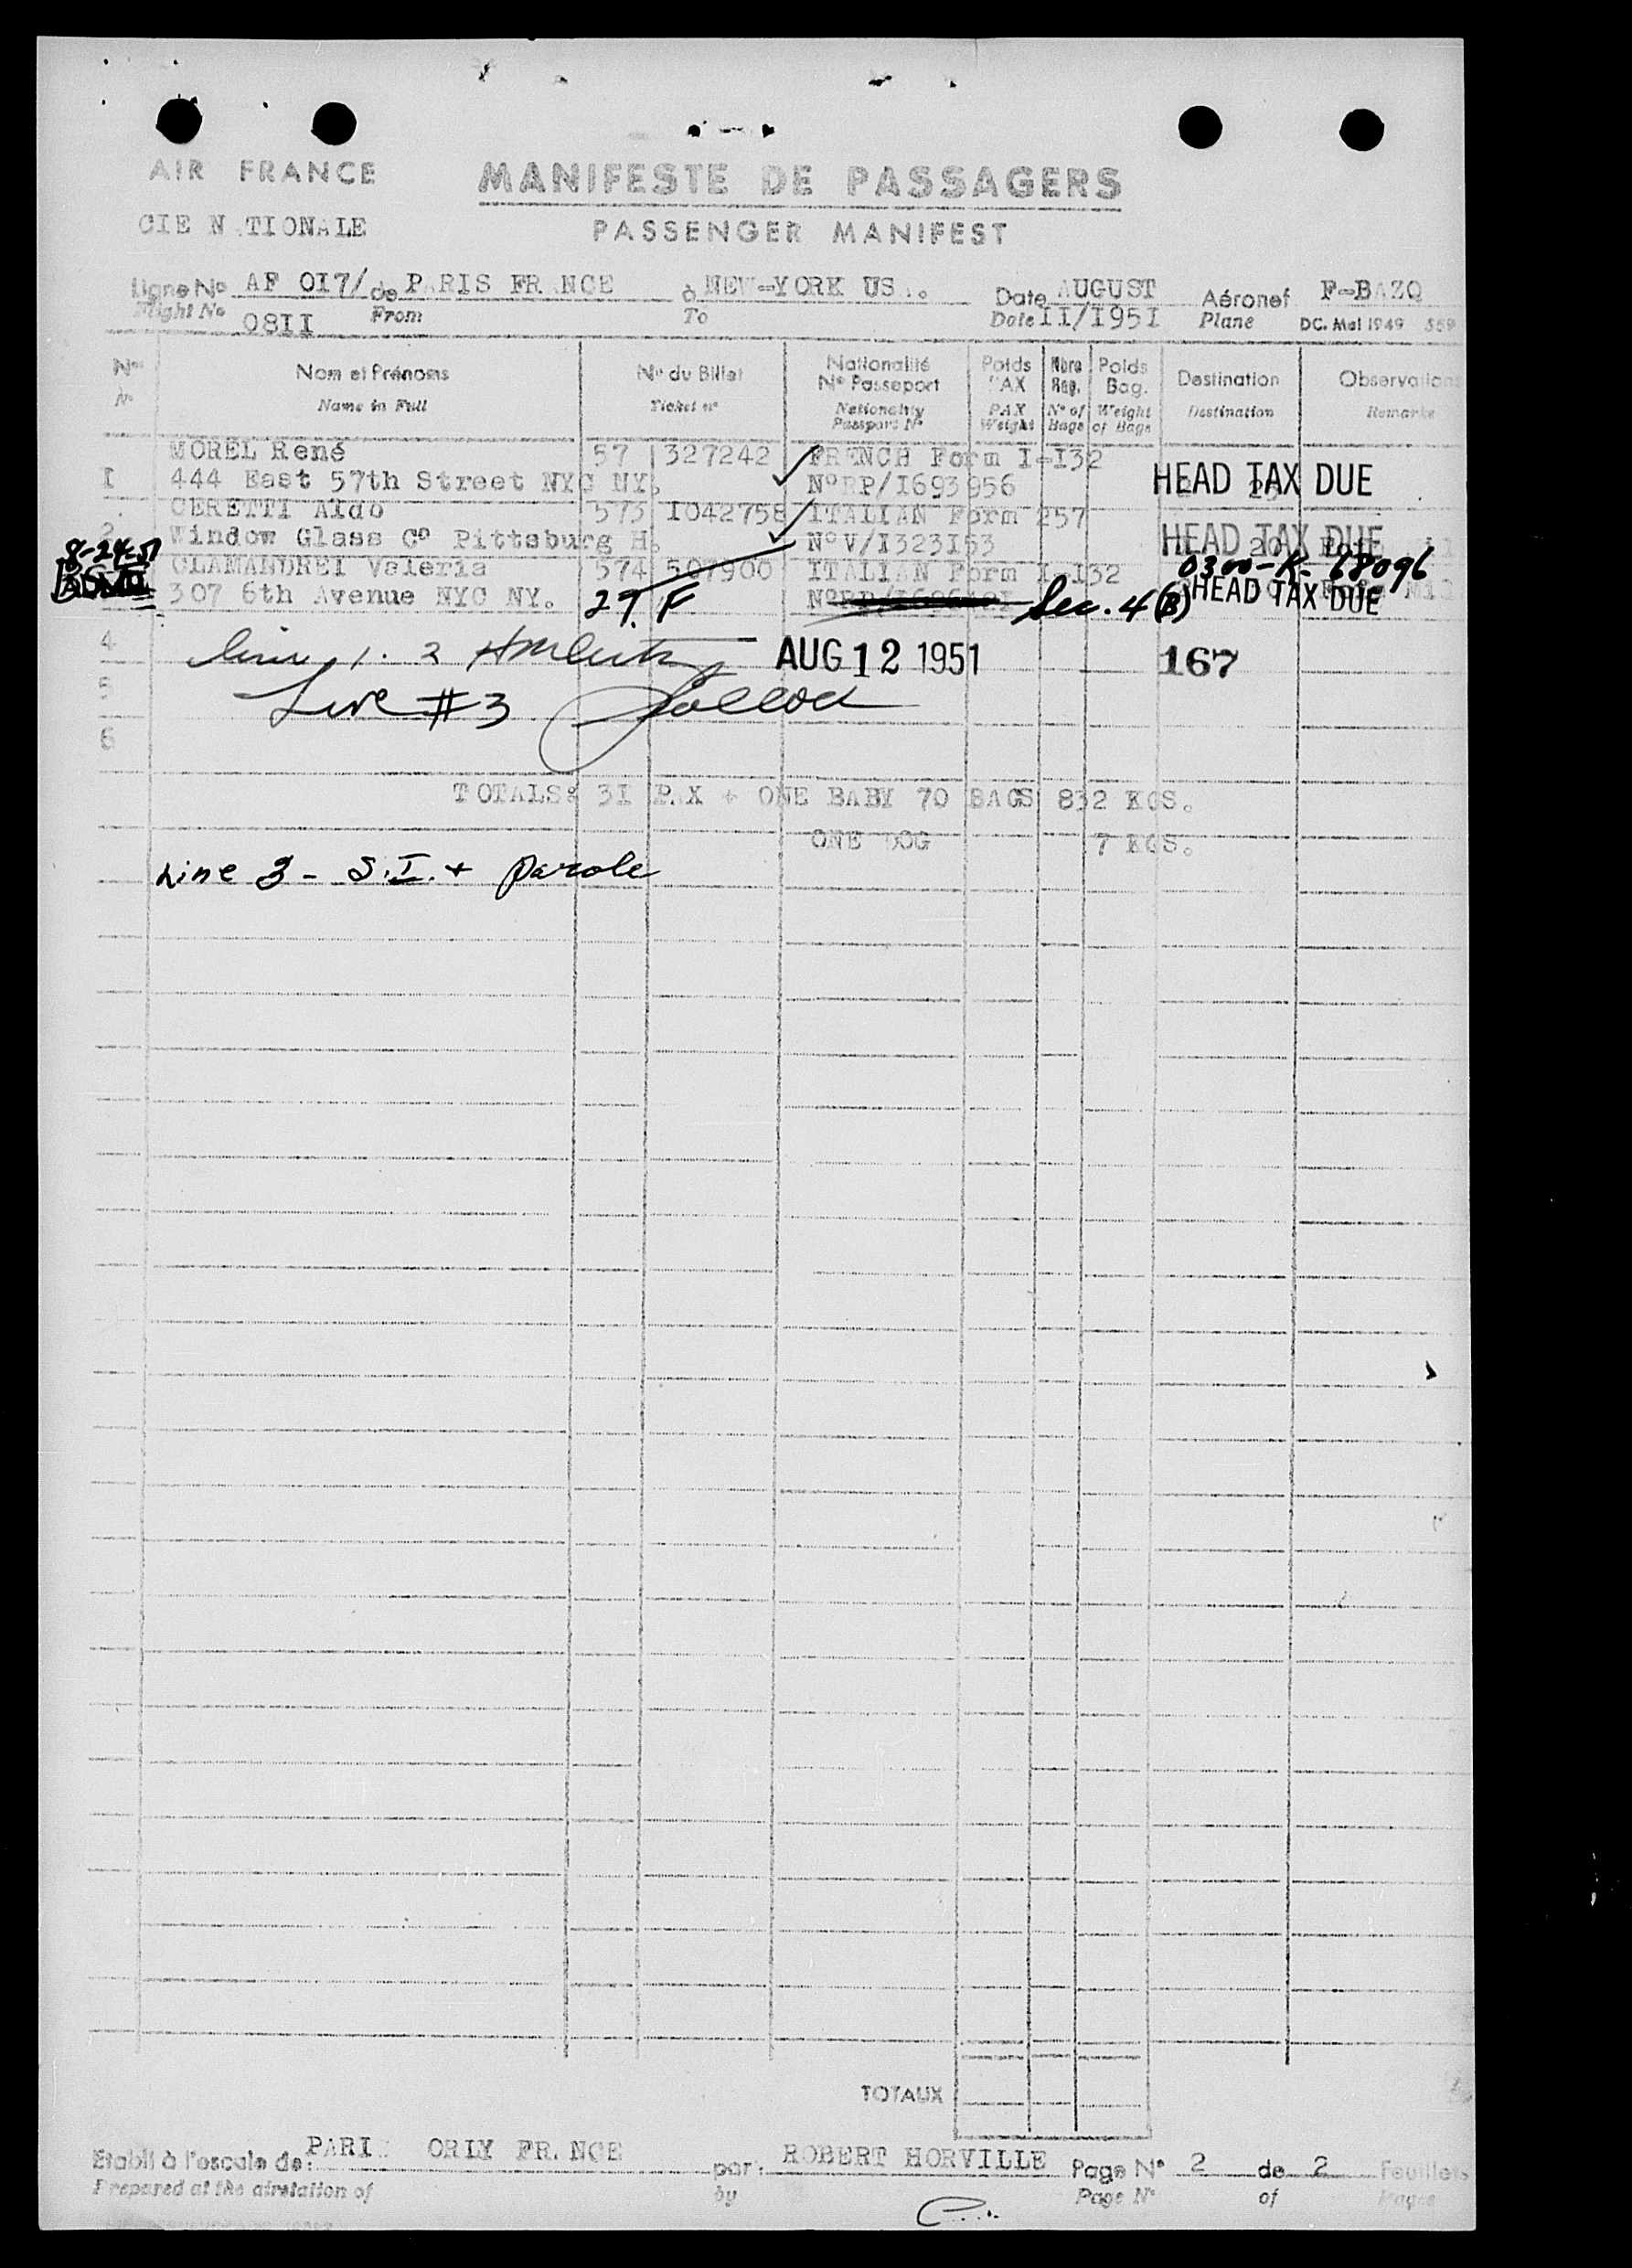 AIR FRANCE
MANIFESTE DE PASSAGERS
CIE N TIONALE
PASSENGER MANIFEST
Ligne No AF 0I7/ de P RIS FR NCE à NEW-YORK US . Date AUGUST Aéronef F-BAZQ
Flight No 08II From To Date II/I95I Plane DC. Mai 1949
Nos Nom et Prénoms No du Billet Nationalité No Passeport Poids PAX Nbre Bag. Poids Bag. Destination Observations
No Name in Full Ticket no Nationality Passport No PAX Weight No of Bags Weight of Bags Destination Remarks
MOREL René 57 327242 FRENCH Form I-I32
I 444 East 57th Street NYC NY. No RP/I693956 HEAD TAX DUE
CERETTI Aldo 573 I042758 ITALIAN Form 257
2 Window Glass Co Pittsburg H. No V/I323I53 HEAD TAX DUE
8-24-51 CLAMANDREI Valeria 574 507900 ITALIAN Form I-I32 0300-K-68096
307 6th Avenue NYC NY. 27. F Sec. 4(B) HEAD TAX DUE
4 Line 1. 2 AUG 12 1951 167
5 Line #3
6
TOTALS: 3I PAX + ONE BABY 70 BAGS 832 KGS.
ONE DOG 7 KGS.
Line 3 - S.I. + Parole
TOTAUX
Etabli à l'escale de: PARI ORLY FR.NCE par: ROBERT HORVILLE Page No 2 de 2 Feuillets
Prepared at the airstation of by Page No of Pages